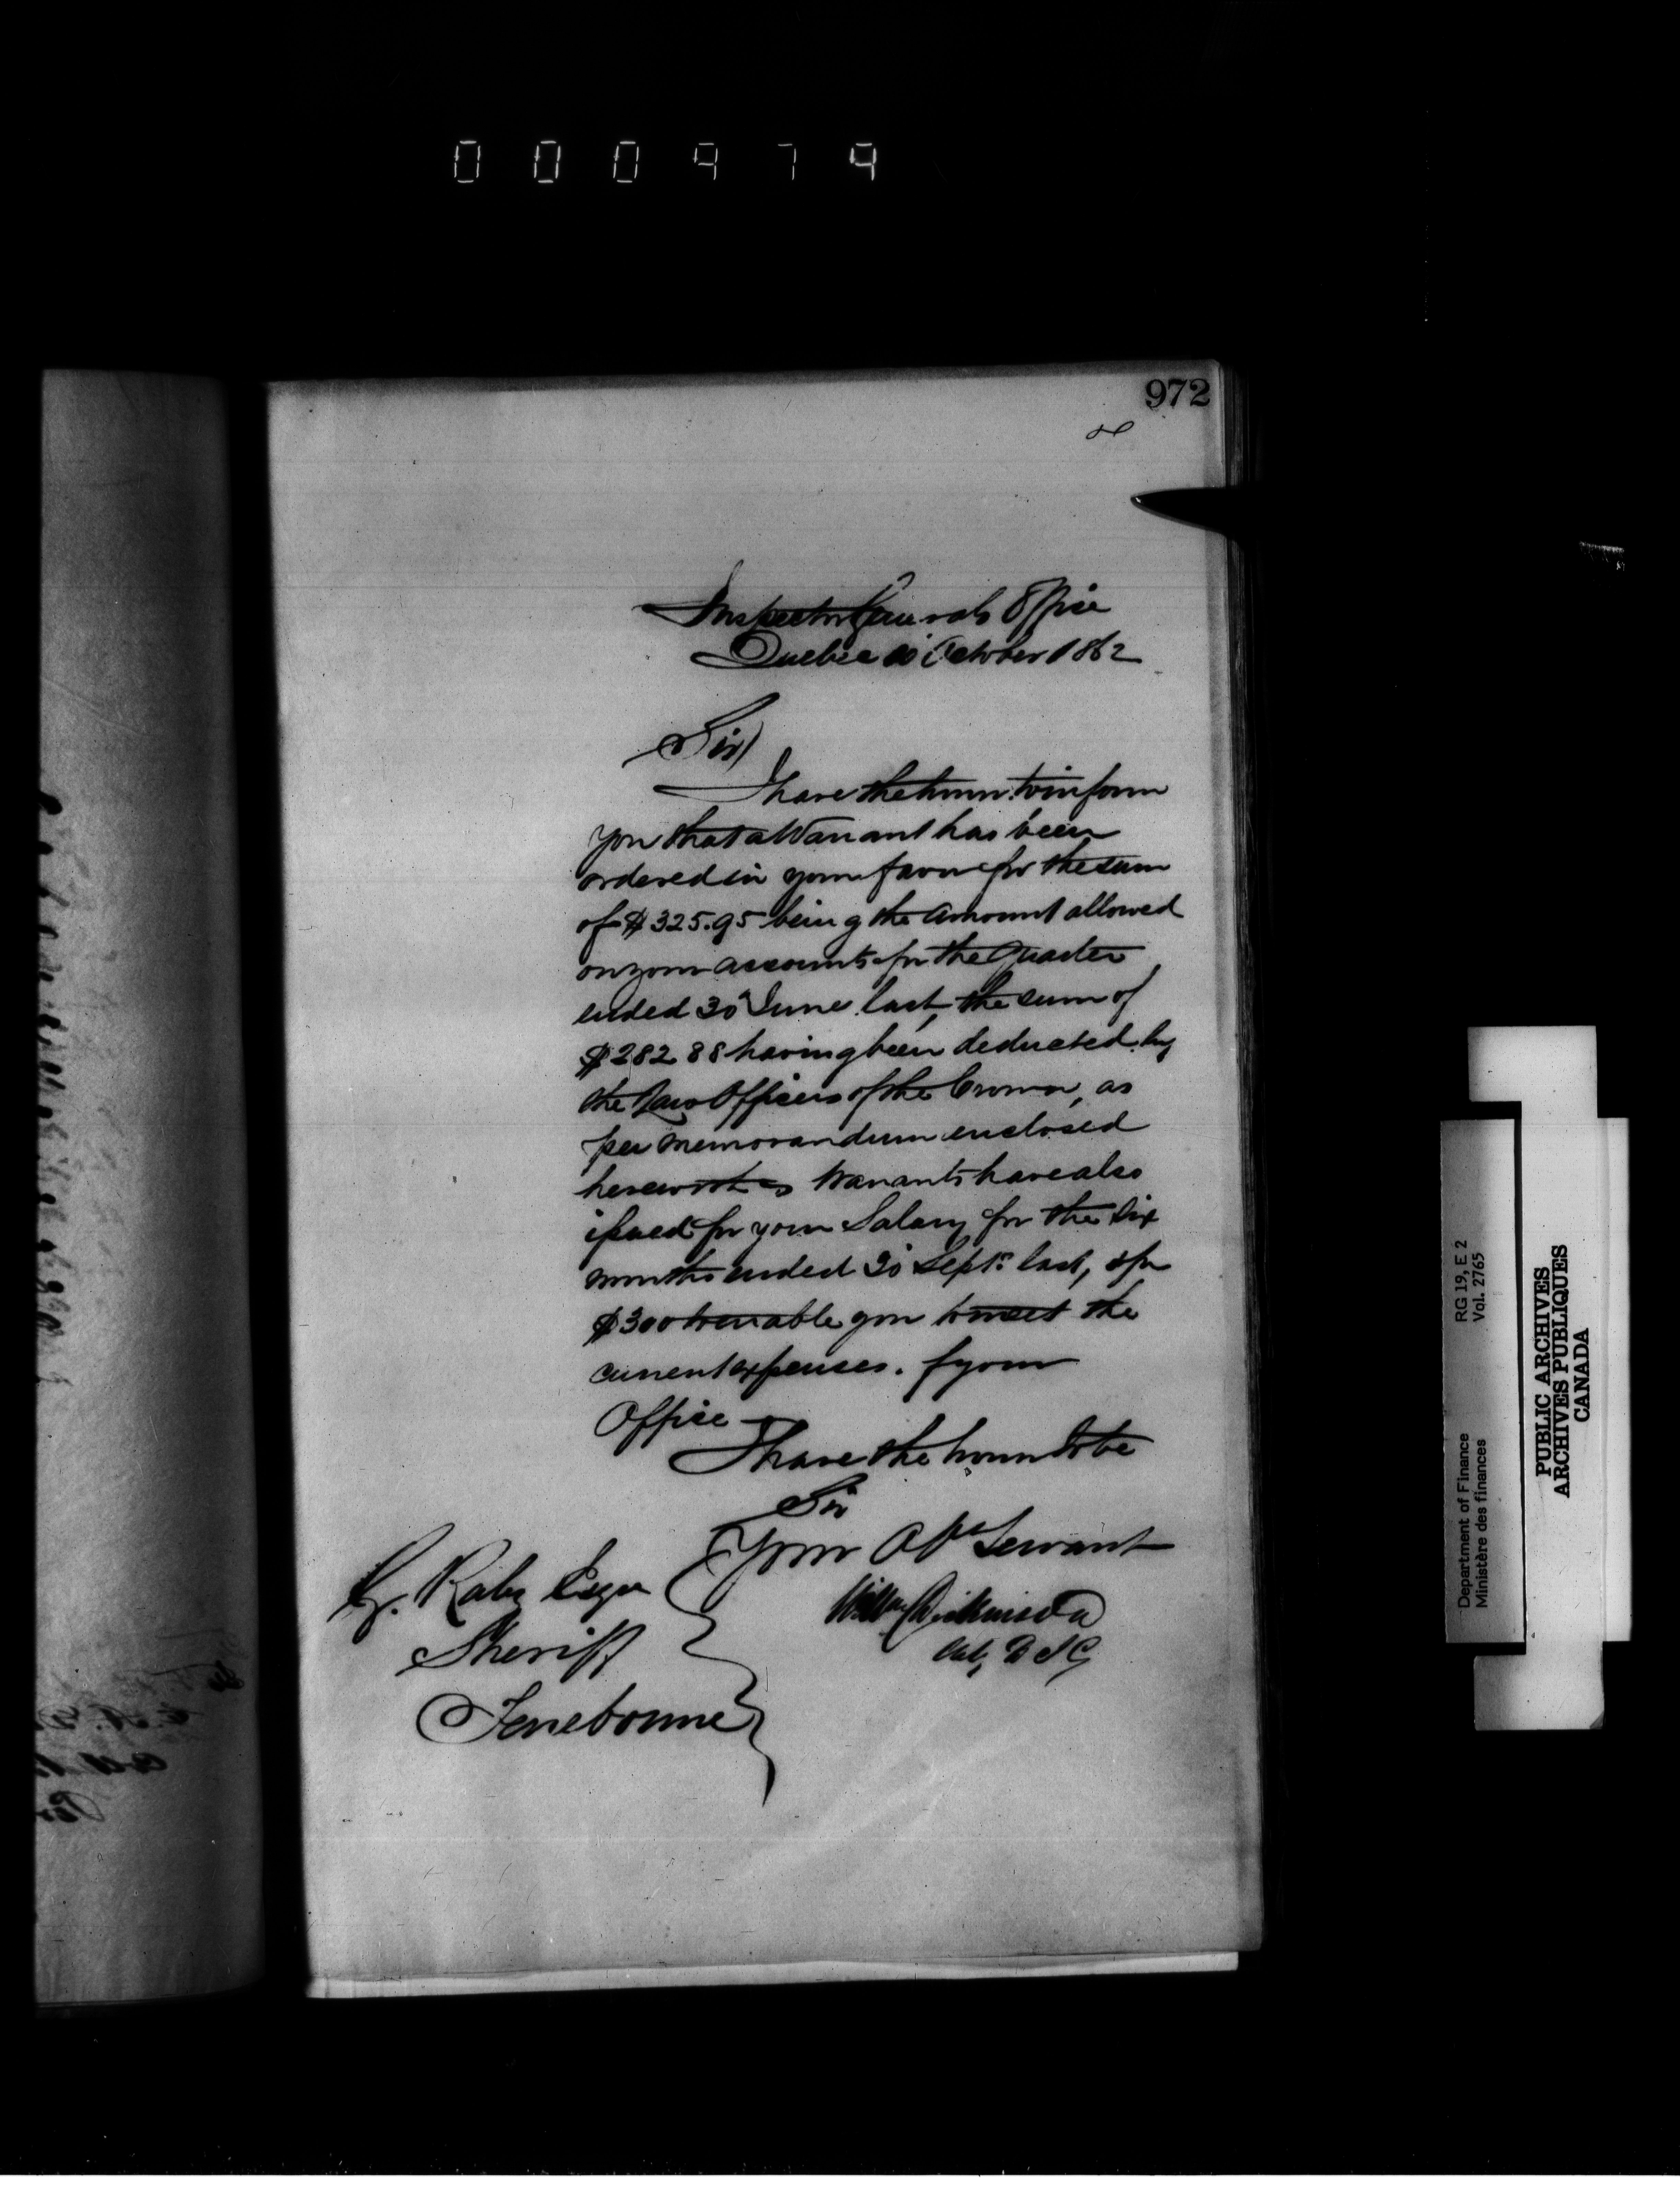 000974
972
Inspector Generals Office
Quebec 10 October 1862
Sir
I have the honor to inform
you that a Warrant has been
ordered in your favor for the sum
of $325.95 being the Amount allowed
on your accounts for the Quarter
ended 30 June last, the sum of
$282 88 having been deducted by
the Law Officers of the Crown, as
per memorandum enclosed
herewith Warrants have also
issued for your Salary for the Six
months ended 30 Sept. last, & for
$300 to enable you to meet the
current expenses of your
Office
I have the honor to be
Sir
Your Obt Servant
Willm Dickinson
Actg D I G
Raby Esqr
Sheriff
Terrebonne
Department of Finance
Ministère des finances
RG 19, E 2
Vol. 2765
PUBLIC ARCHIVES
ARCHIVES PUBLIQUES
CANADA